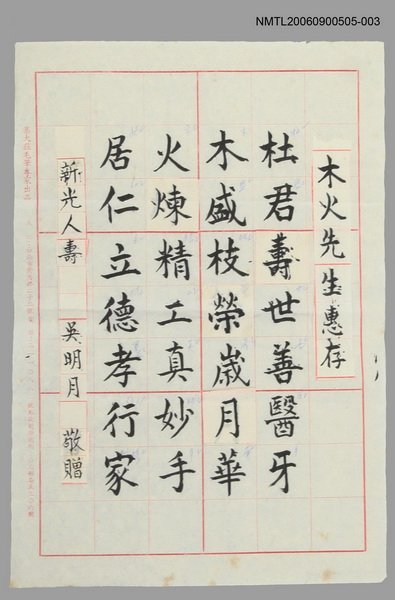 NMTL20060900505-003
木火先生惠存
杜君壽世善醫牙
木盛枝榮歲月華
火煉精工真妙手
居仁立德孝行家
新光人壽 吳明月 敬贈